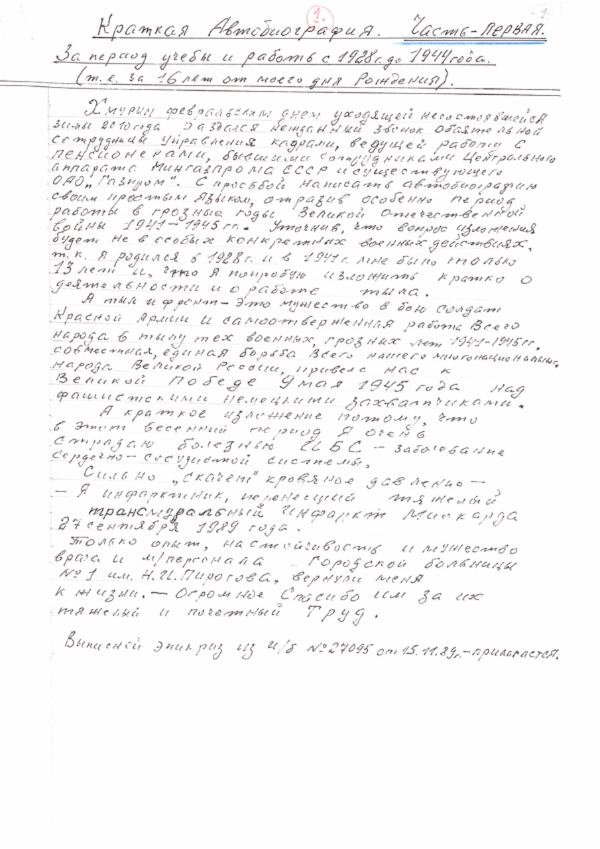 1.
- 1 -
Краткая Автобиография. Часть-первая.
За период учебы и работы с 1928г. до 1944 года.
(т.е. за 16 лет от моего дня рождения).
Хмурым февральским днем уходящей несостоявшейся
зимы 2010 года раздался нежданный звонок обаятельной
сотрудницы Управления кадрами, ведущей работу с
пенсионерами, бывшими сотрудниками Центрального
аппарата Мингазпрома СССР и существующего
ОАО "Газпром". С просьбой написать автобиографию
своим простым языком, отразив особенно период
работы в грозные годы Великой Отечественной
войны 1941-1945 гг. Уточнив, что вопрос изложения
будет не в особых конкретных военных действиях,
т.к. я родился в 1928 г. и в 1941 г. мне было только
13 лет и, что я попробую изложить кратко о
деятельности и о работе тыла.
А тыл и фронт - это мужество в бою солдат
Красной Армии и самоотверженная работа всего
народа в тылу тех военных, грозных лет 1941-1945 гг.
совместная, единая борьба всего нашего многонациональн.
народа Великой России, привела нас к
Великой Победе 9 мая 1945 года над
фашистскими немецкими захватчиками.
А краткое изложение потому, что
в этот весенний период я очень
страдаю болезнью ИБС - заболевание
сердечно-сосудистой системы,
Сильно "скачет" кровяное давление -
- Я инфарктник, перенесший тяжелый
трансмуральный Инфаркт Миокарда
27 сентября 1989 года.
Только опыт, настойчивость и мужество
врача и м/персонала Городской больницы
№1 им. Н.И. Пирогова, вернули меня
к жизни. - Огромное Спасибо им за их
тяжелый и почетный Труд.
Выписной эпикриз из и/б №27095 от 15.11.89г. - прилагается.